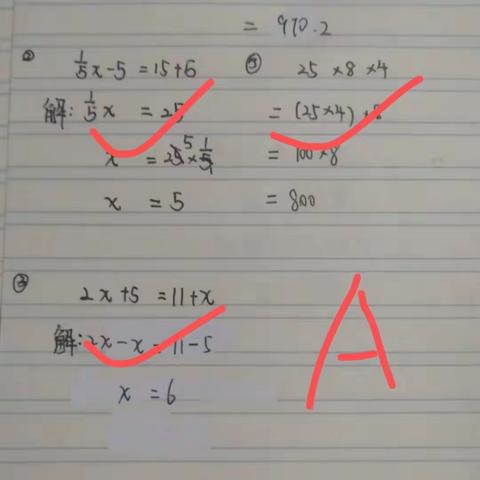 = 970.2
② 1/5x-5 = 15+6
解: 1/5x = 25
x = 25×1/5
x = 5
⑤ 25×8×4
= (25×4)×8
= 100×8
= 800
③ 2x+5 = 11+x
解: 2x-x = 11-5
x = 6
A